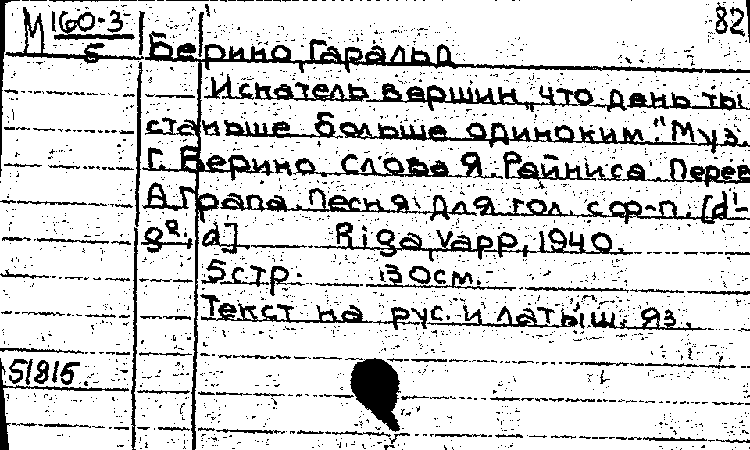 М 160-3 82
5
Берино, Гаральд
Искатель вершин, что день ты
станьше больше одиноким." Муз.
Г. Берино. Слова Я. Райниса. Перев
А. Грапа. Песня. Для гол. с ф-п. [d'-
g²; d] Riga, Vapp, 1940.
5 стр. 30 см.
Текст на рус. и латыш. яз.
51815.